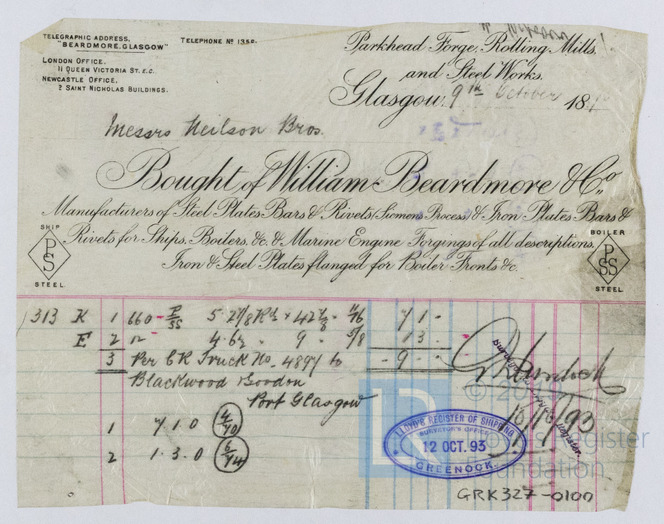 TELEGRAPHIC ADDRESS,
"BEARDMORE, GLASGOW"
TELEPHONE Nº 1355.
LONDON OFFICE.
11 QUEEN VICTORIA ST. E.C.
NEWCASTLE OFFICE.
2 SAINT NICHOLAS BUILDINGS.
Parkhead Forge, Rolling Mills,
and Steel Works.
Glasgow, 9th October 18
Messrs Neilson Bros.
Bought of William Beardmore & Co.,
Manufacturers of Steel Plates Bars & Rivets (Siemens Process) & Iron Plates Bars &
Rivets for Ships, Boilers, &c. & Marine Engine Forgings of all descriptions.
Iron & Steel Plates flanged for Boiler Fronts &c.
SHIP
PSS
STEEL
BOILER
PSS
STEEL
1313 K 1 660 P/SS
E 2 13
3 Per CR Truck No. 4897 to - 9 -
Blackwood & Gordon
Port Glasgow
1 7.1.0
2 1.3.0
LLOYD'S REGISTER OF SHIPPING
SURVEYOR'S OFFICE
12 OCT. 93
GREENOCK
GRK327-0100